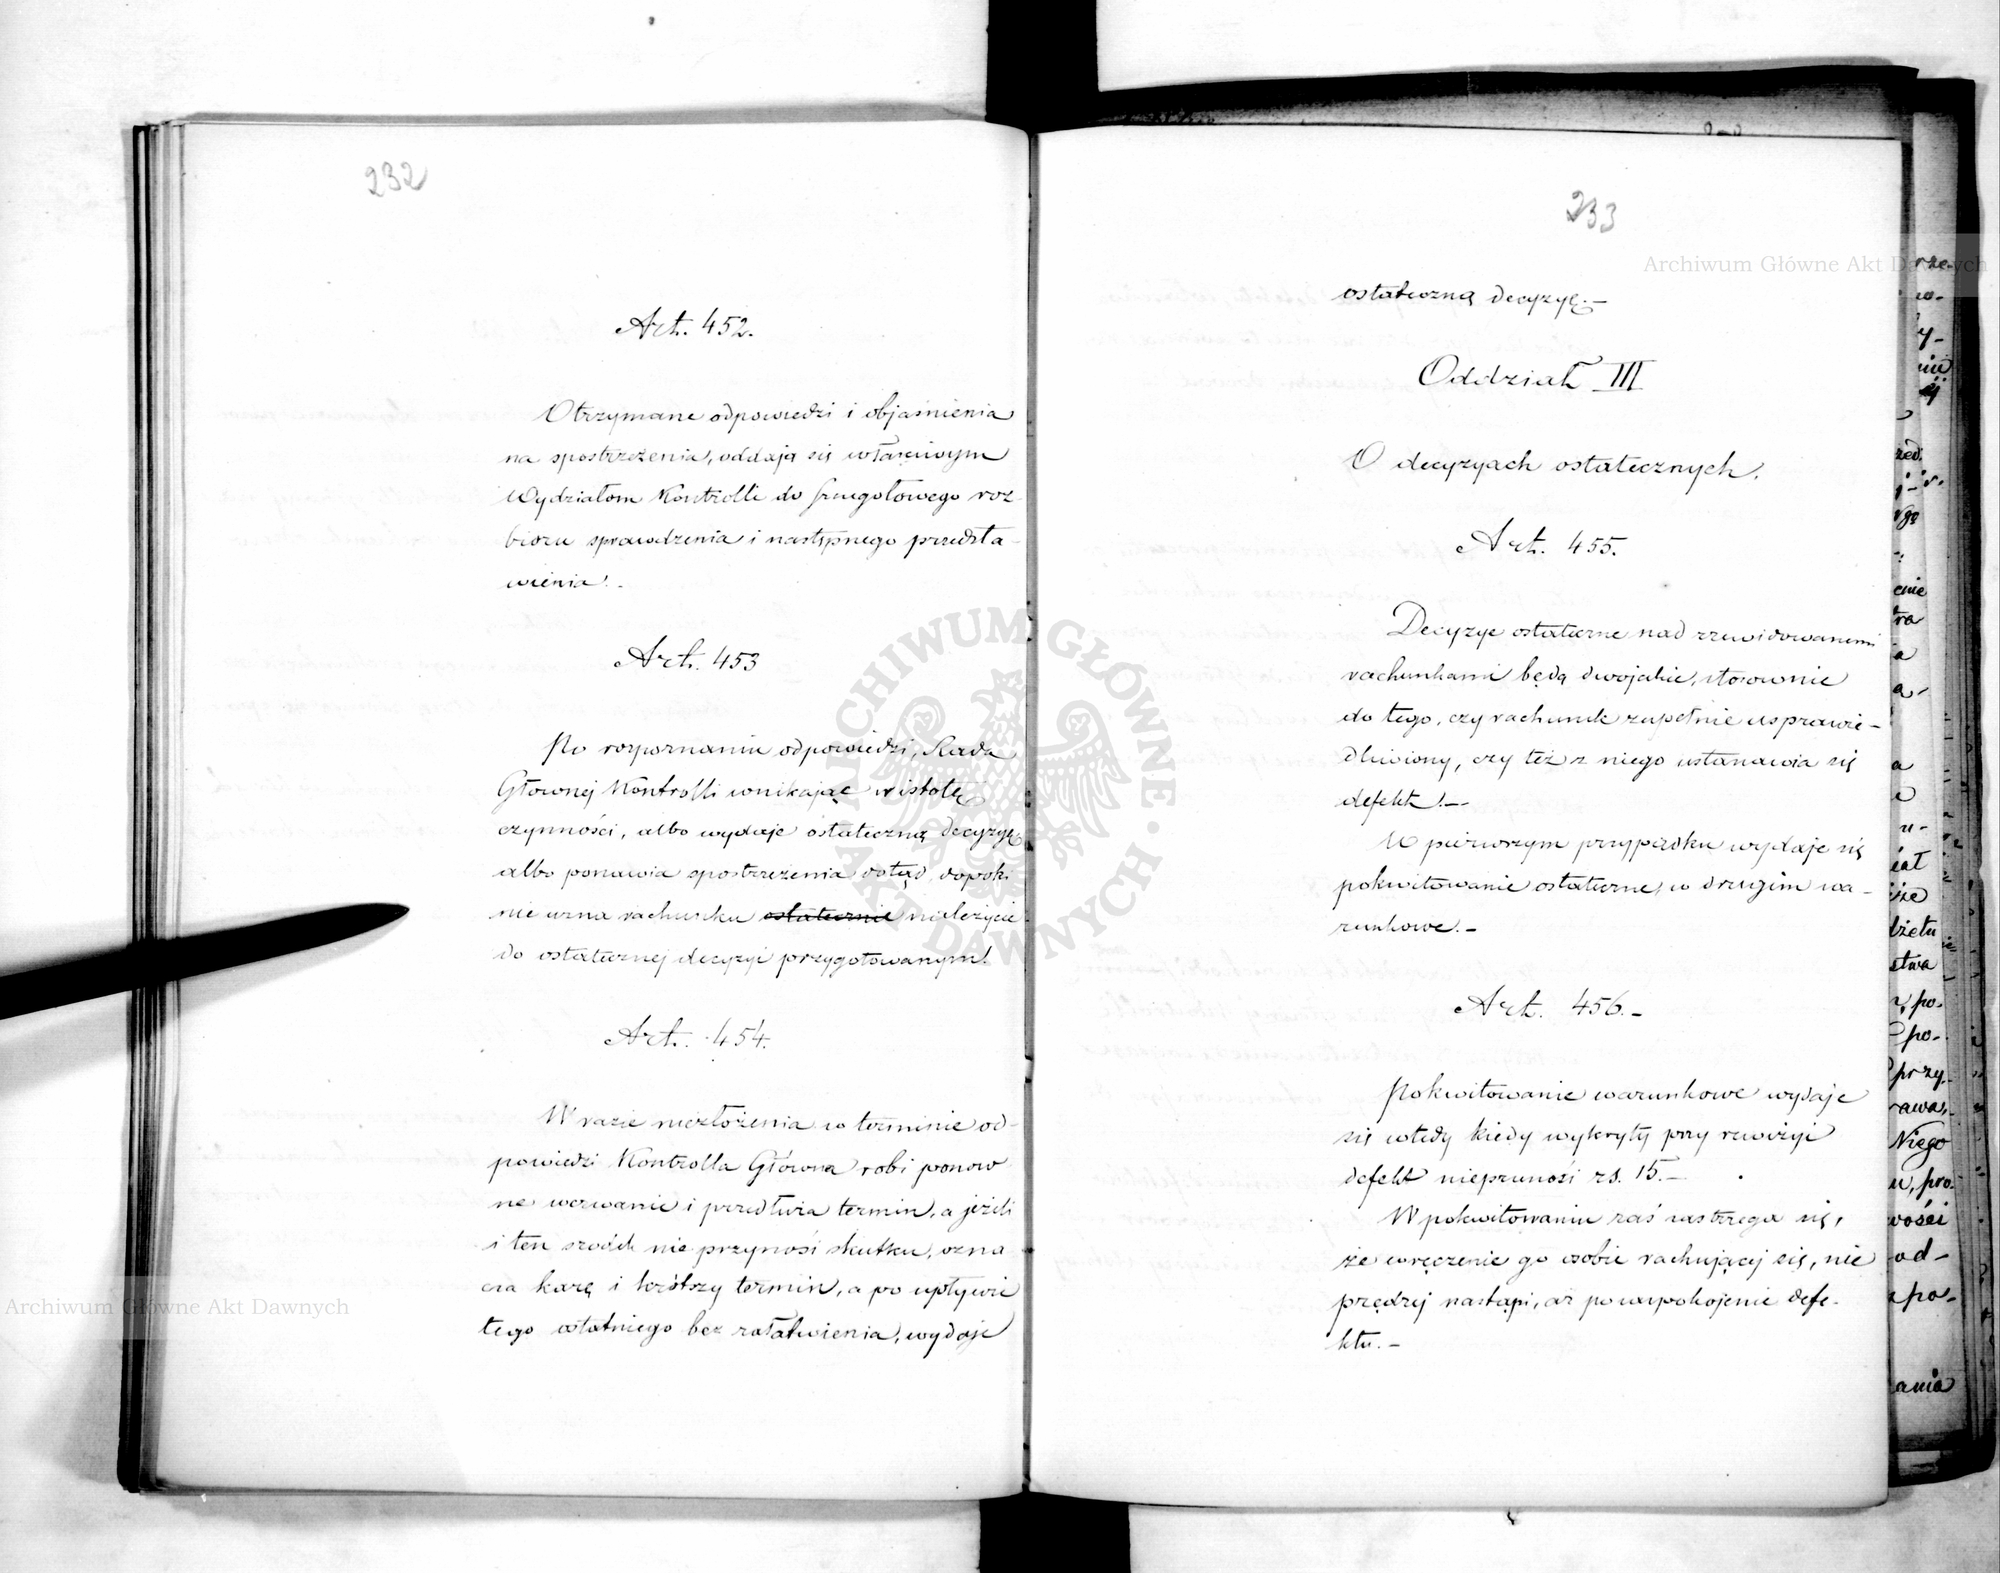 232
Art. 452.
Otrzymane odpowiedzi i objaśnienia
na spostrzeżenia, oddają się właściwym
Wydziałom Kontrolli do szczegółowego roz-
bioru sprawdzenia i następnego przedsta-
wienia. -
Art. 453
Po rozpoznaniu odpowiedzi, Rada
Głównej Kontrolli wnikając w istotę
czynności, albo wydaje ostateczną decyzyę
albo ponawia spostrzeżenia dotąd, dopóki
nie uzna rachunku ostatecznie należycie
do ostatecznej decyzyi przygotowanym.
Art. 454.
W razie niezłożenia w terminie od-
powiedzi Kontrolla Główna robi ponow
ne wezwanie i przedłuża termin, a jeżeli
i ten środek nie przynosi skutku, ozna
cza karę i krótszy termin, a po upływie
tego ostatniego bez załatwienia, wydaje
233
ostateczną decyzyę. -
Oddział III
O decyzyach ostatecznych.
Art. 455.
Decyzye ostateczne nad zrewidowanemi
rachunkami będą dwojakie, stosownie
do tego, czy rachunek zupełnie usprawie-
dliwiony, czy też z niego ustanawia się
defekt. -
W pierwszym przypadku wydaje się
pokwitowanie ostateczne, w drugim wa-
runkowe. -
Art. 456. -
Pokwitowanie warunkowe wydaje
się wtedy kiedy wykryty przy rewizyi
defekt nieprzenosi rs. 15. -
W pokwitowaniu zaś zastrzega się,
że wręczenie go osobie rachującej się, nie
prędzej nastąpi, aż po zaspokojeniu defe-
ktu. -
Archiwum Główne Akt Dawnych
Archiwum Główne Akt Dawnych
ARCHIWUM GŁÓWNE AKT DAWNYCH